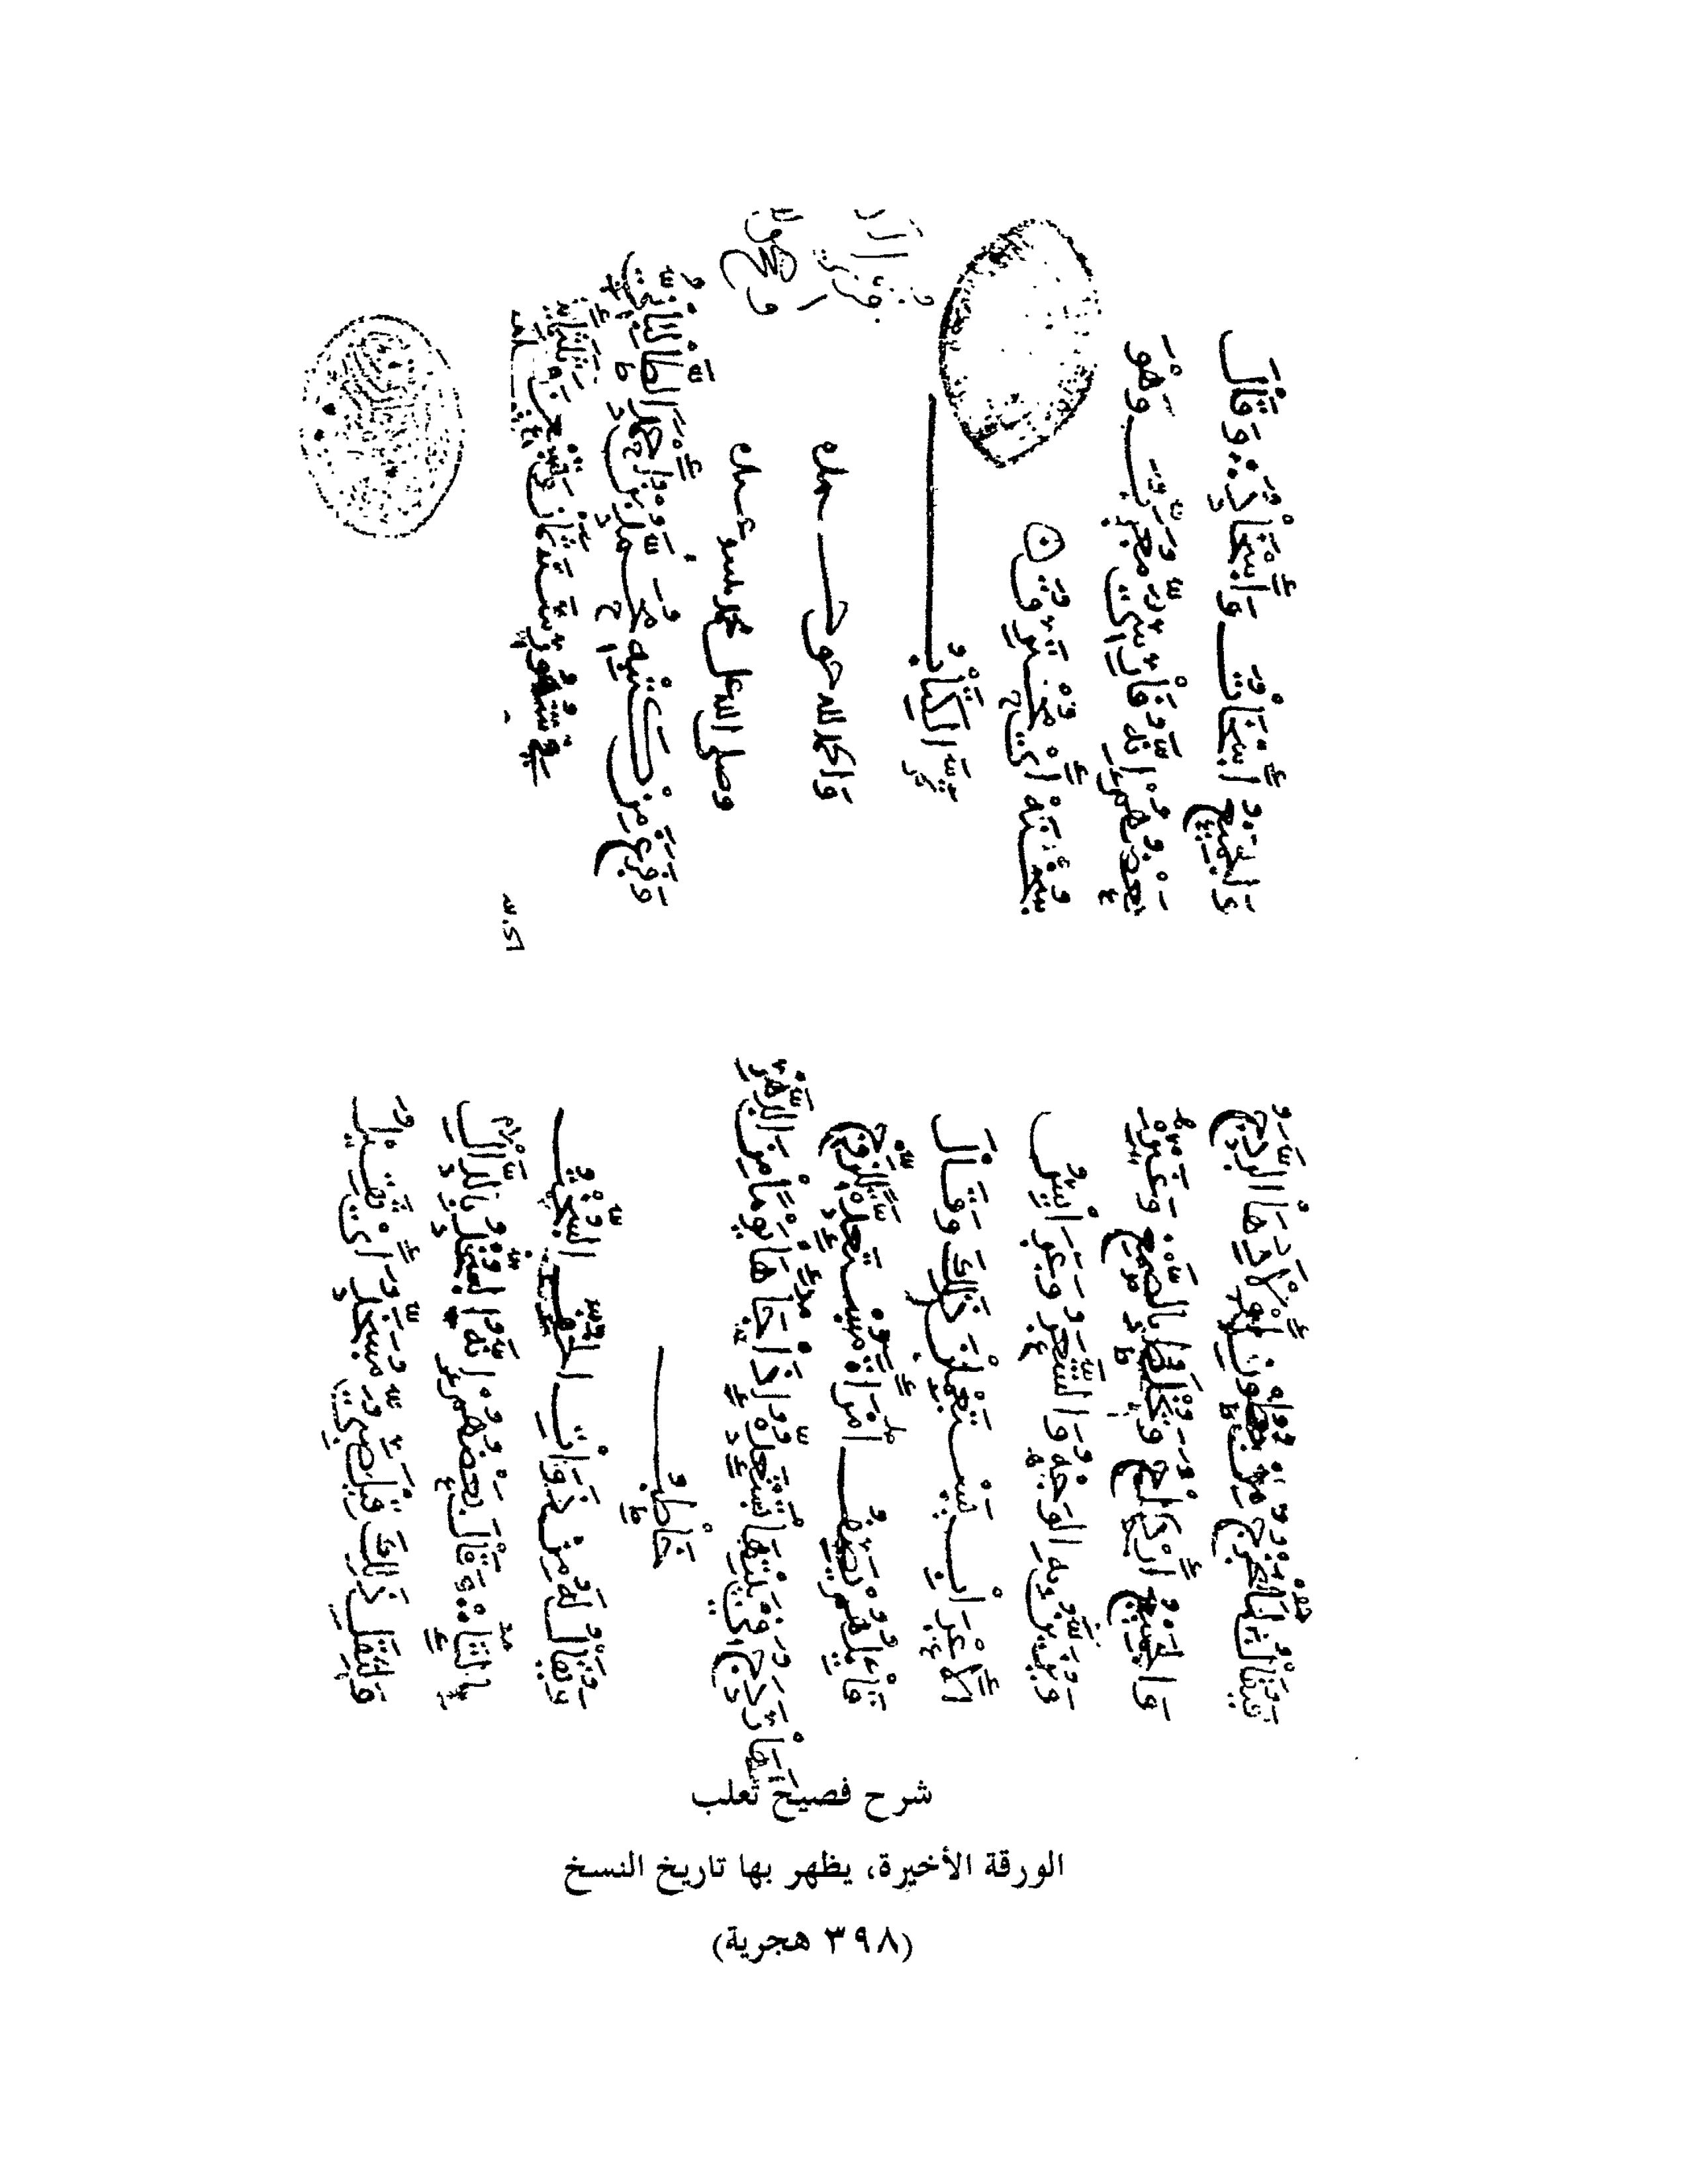 فيقال لما يخرج من بطون أولادها الردج
والجميع أرداج ويخلط بالصمغ وغيره
ويزين به الوجه والشعر وعرائس
الأعراب يستعملن ذلك وقال
قائلهم يصف امرأة مستعدة للزوج
لها ردج في بيتها تستعده إذا جاءها يوما من الدهر
خاطب
ويقال له من ذوات الخف السخت
بالتاء وقال بعضهم إنه السخد بالدال
فلثقل ذلك قيل صبي مسخد أي ثقيل
والجميع أسخات وأسخاد وقال
بعضهم إنه فارسي معرب وهو
أي محترق
تم الكتاب
والحمد لله حق حمده
وصلى الله على محمد
وفرغ من كتبه محمد بن أحمد الطالقاني
في شهور سنة ثمان وتسعين وثلثمائة
شرح فصيح ثعلب
الورقة الأخيرة، يظهر بها تاريخ النسخ
(٣٩٨ هجرية)